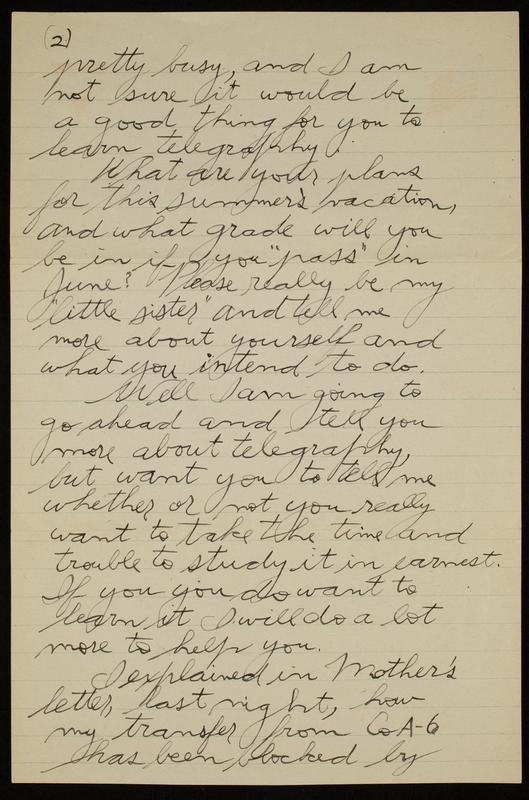 (2)
pretty busy, and I am
not sure it would be
a good thing for you to
learn telegraphy.
What are your plans
for this summer's vacation,
and what grade will you
be in if you "pass" in
June? Please really be my
"little sister" and tell me
more about yourself and
what you intend to do.
Well I am going to
go ahead and tell you
more about telegraphy,
but want you to tell me
whether or not you really
want to take the time and
trouble to study it in earnest.
If you you do want to
learn it I will do a lot
more to help you.
I explained in Mother's
letter, last night, how
my transfer from Co A-6
has been blocked by